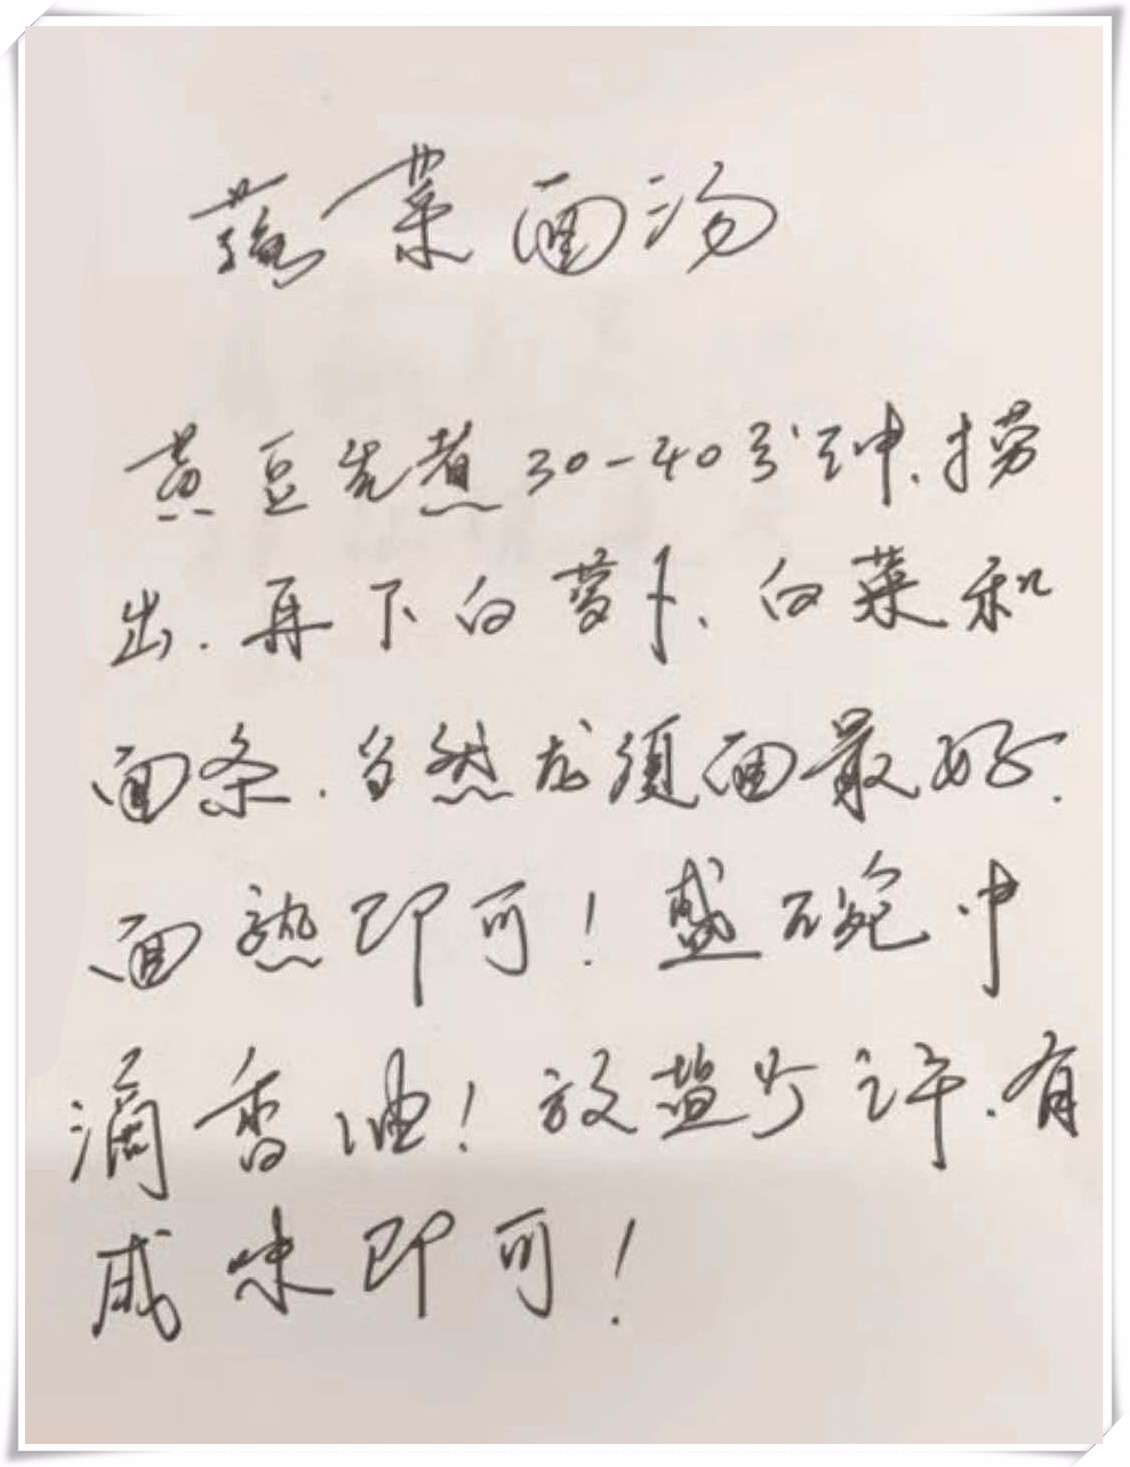 蔬菜面汤
黄豆先煮30-40分钟.捞
出.再下白萝卜、白菜和
面条.当然龙须面最好.
面熟即可!盛碗中
滴香油!放盐少许.有
咸味即可!